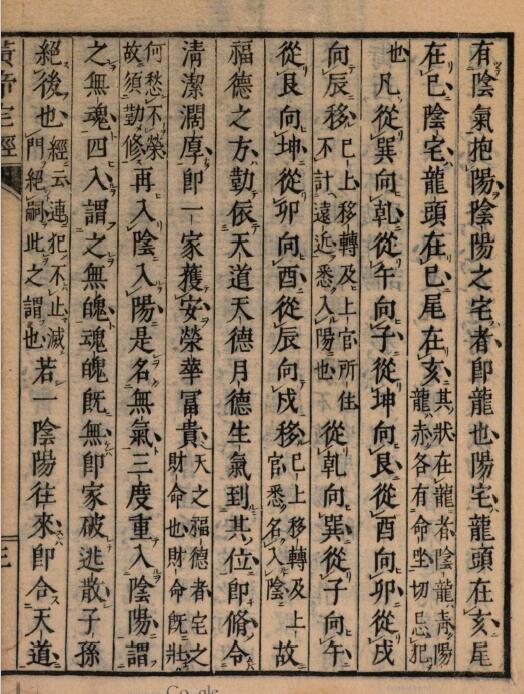 有陰氣抱陽陰陽之宅者即龍也陽宅龍頭在亥尾
在巳陰宅龍頭在巳尾在亥其狀在龍者陰龍青陽龍赤各有命坐切忌犯
也凡從巽向乾從午向子從坤向艮從酉向卯從戌
向辰移巳上移轉及上官所住不計遠近悉入陽也從乾向巽從子向午
從艮向坤從卯向酉從辰向戌移巳上移轉及上官悉名入陰故
福德之方勤依天道天德月德生氣到其位即修令
清潔濶厚即一家獲安榮華冨貴天之福德者宅之財命也財命旣壯
何愁不榮故須勤修再入陰入陽是名無氣三度重入陰陽謂
之無魂四入謂之無魄魂魄旣無即家破逃散子孫
絕後也經云連犯不止滅門絕嗣此之謂也若一陰陽往來即合天道
黃帝宅經